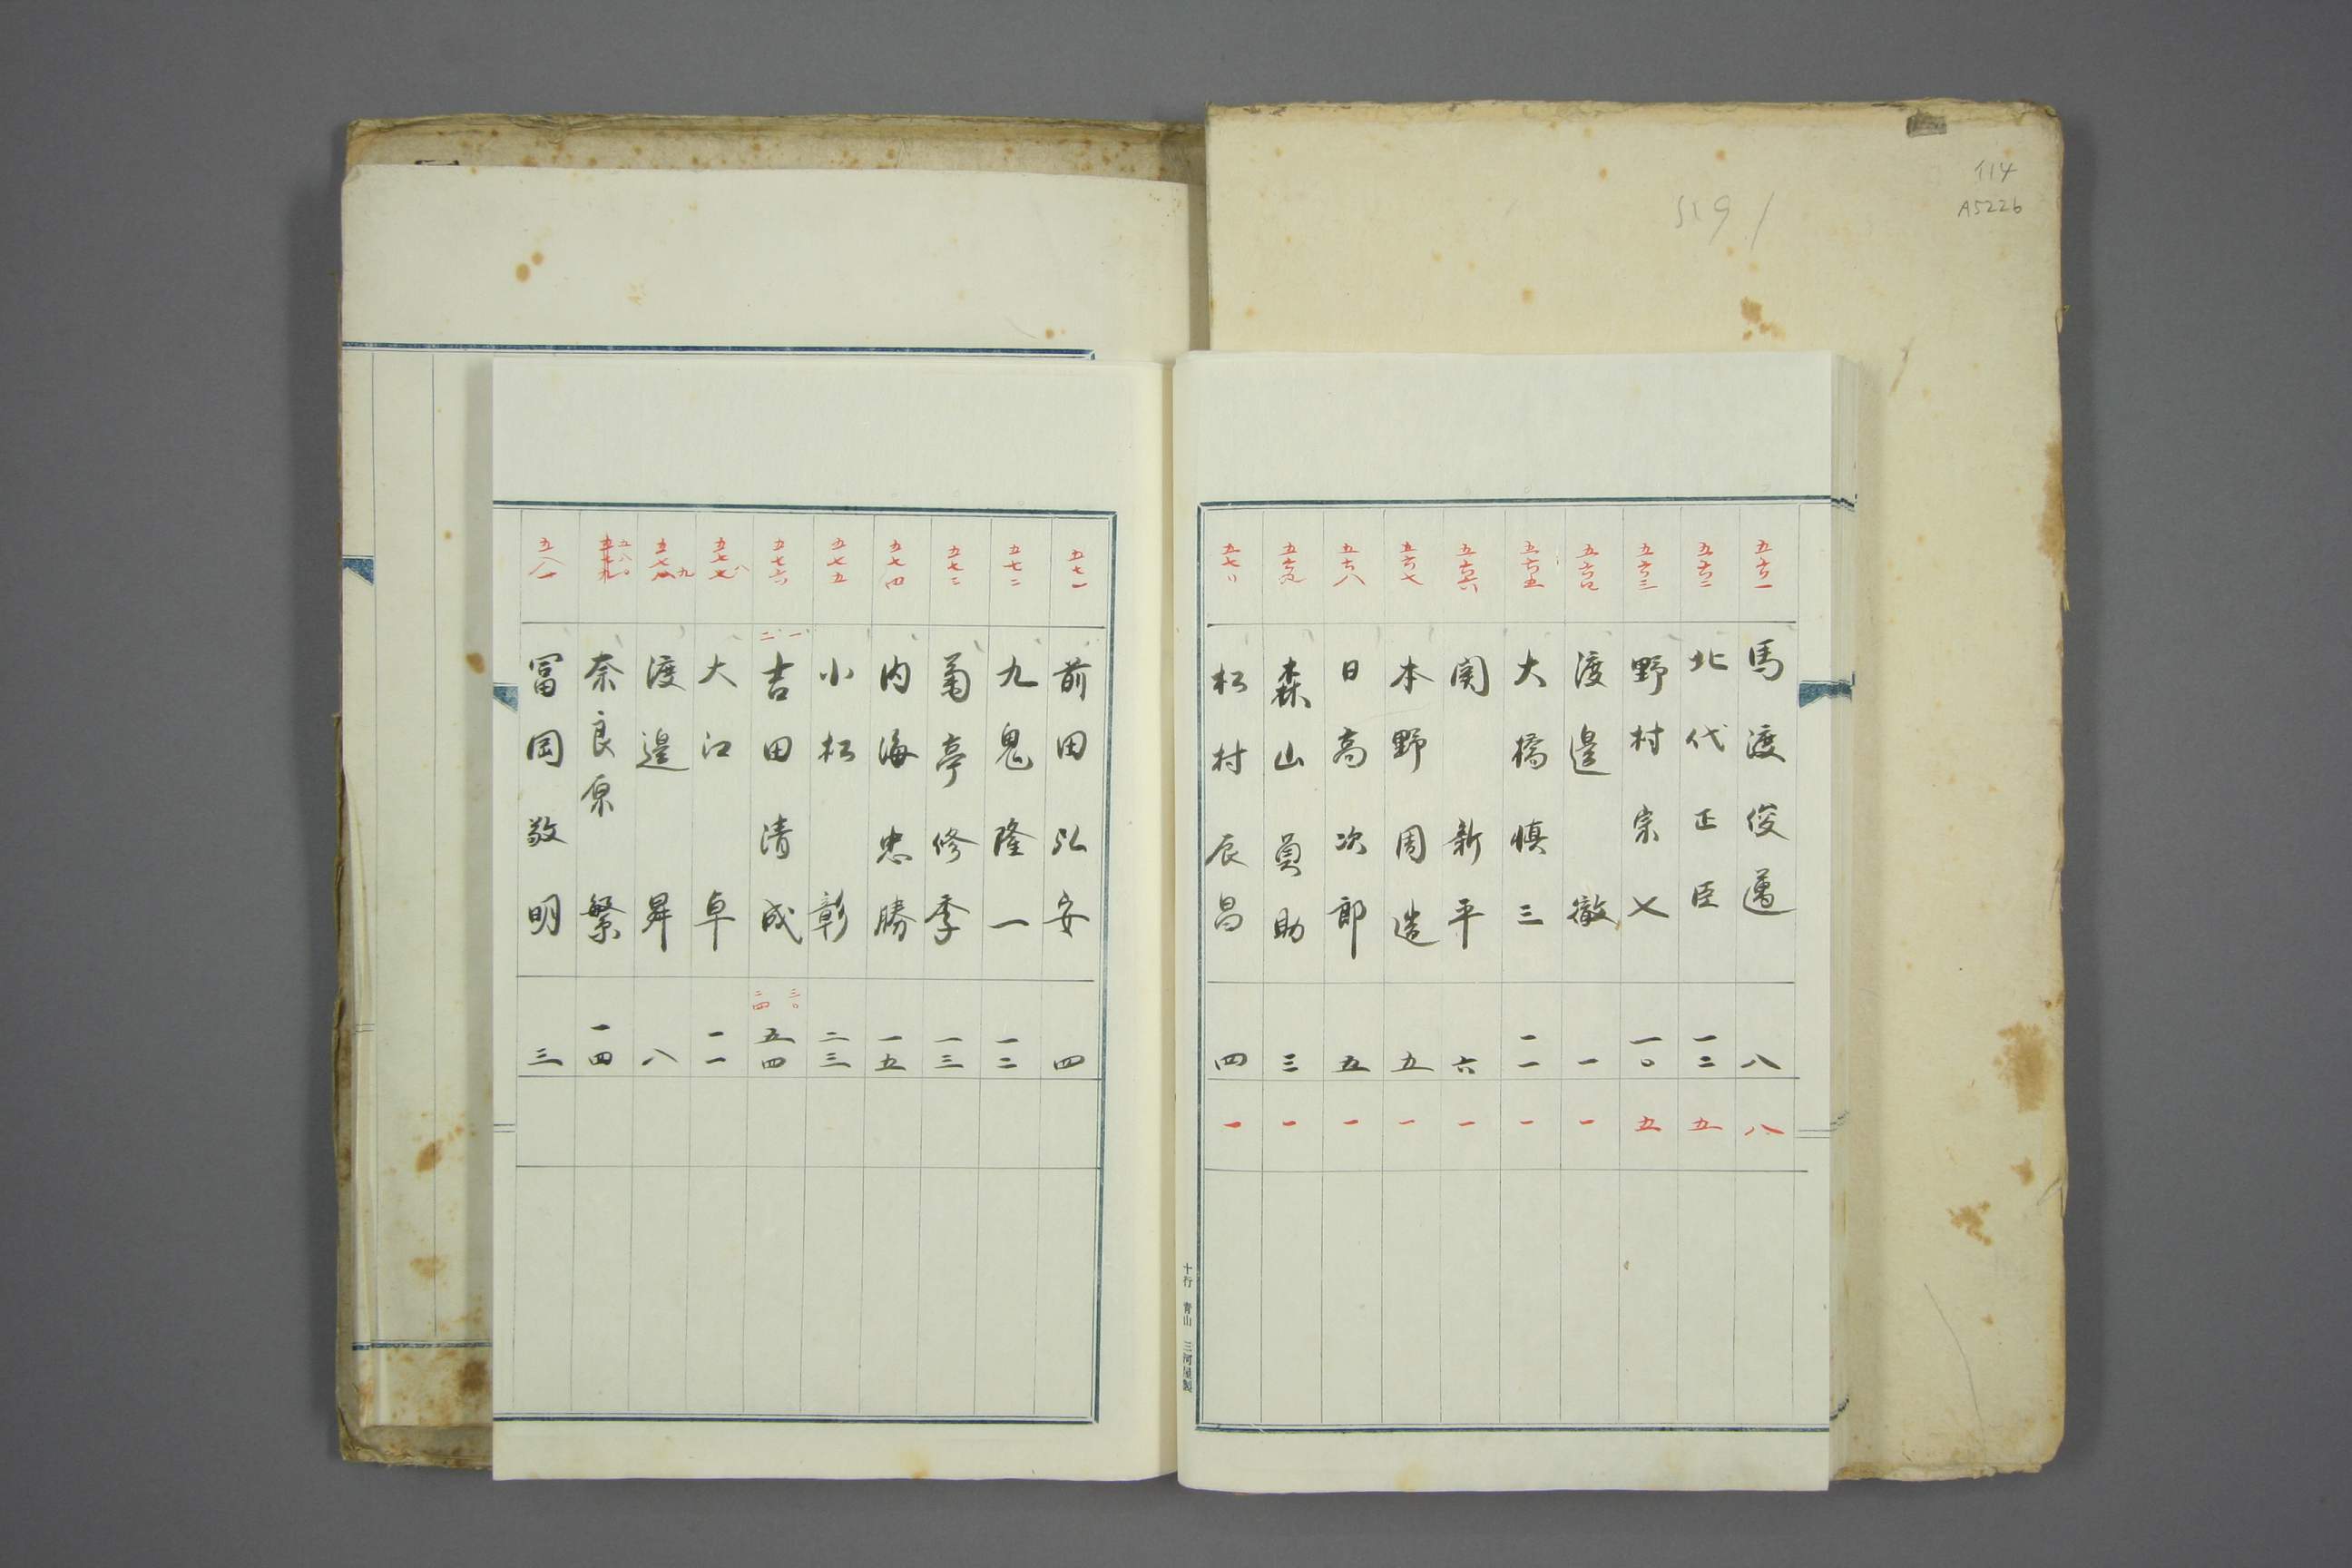 114
A5226
519
五六一 馬渡俊邁 八 八
五六二 北代正臣 一二 五
五六三 野村宗七 一〇 五
五六四 渡邉徹 一 一
五六五 大橋慎三 一一 一
五六六 関新平 六 一
五六七 本野周造 五 一
五六八 日高次郎 五 一
五六九 森山員助 三 一
五七〇 松村辰昌 四 一
十行 青山 三河屋製
五七一 前田弘安 四
五七二 九鬼隆一 一二
五七三 菊亭修季 一三
五七四 内海忠勝 一五
五七五 小松彰 二三
五七六 一 二 吉田清成 三〇 二四 五四
五七七 八 大江卓 一一
五七八 九 渡邉昇 八
五七九 五八〇 奈良原繁 一四
五八一 冨岡敬明 三